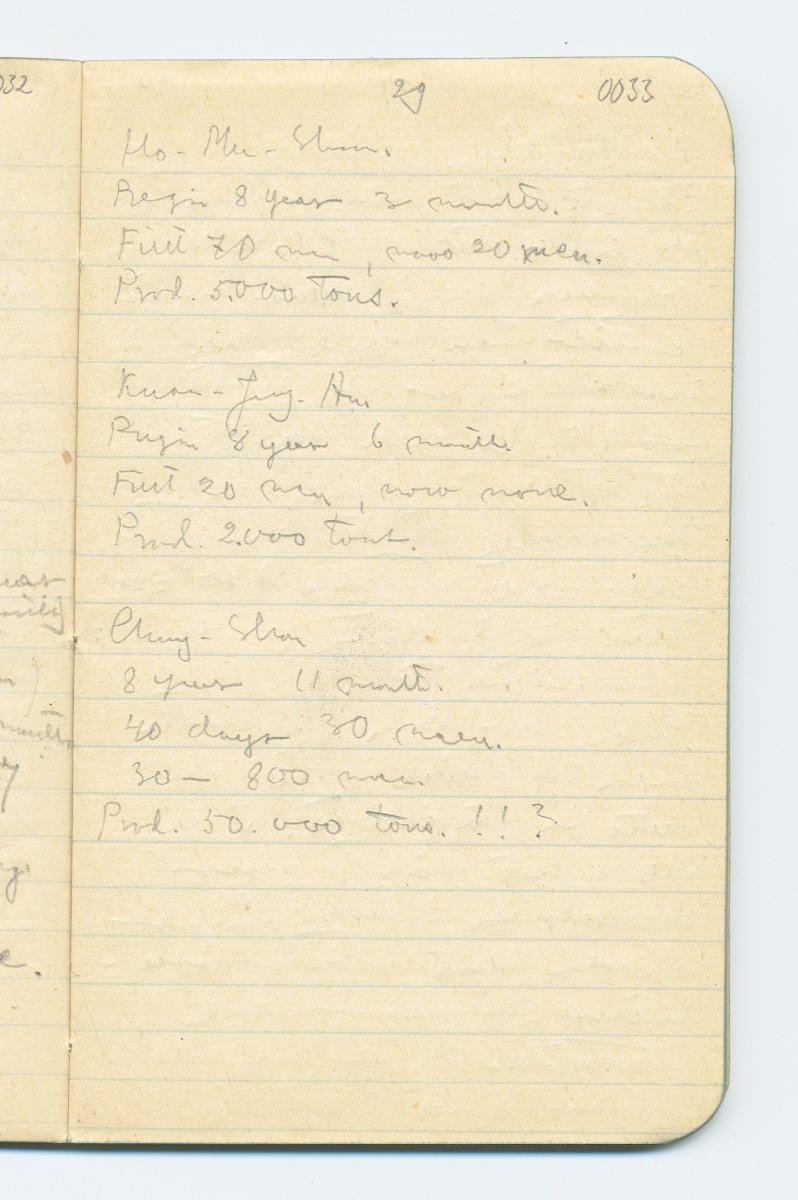 032
29 0033
Ho-Mu-Shan.
Begin 8 year 3 months.
First 70 men, now 20 men.
Prod. 5.000 tons.
Kuan-Jug-Hu
Begin 8 year 6 month.
First 20 men, now none.
Prod. 2.000 tons.
Chung-Shan
8 year 11 month.
40 days 30 men.
30 — 800 men.
Prod. 50.000 tons. !!?